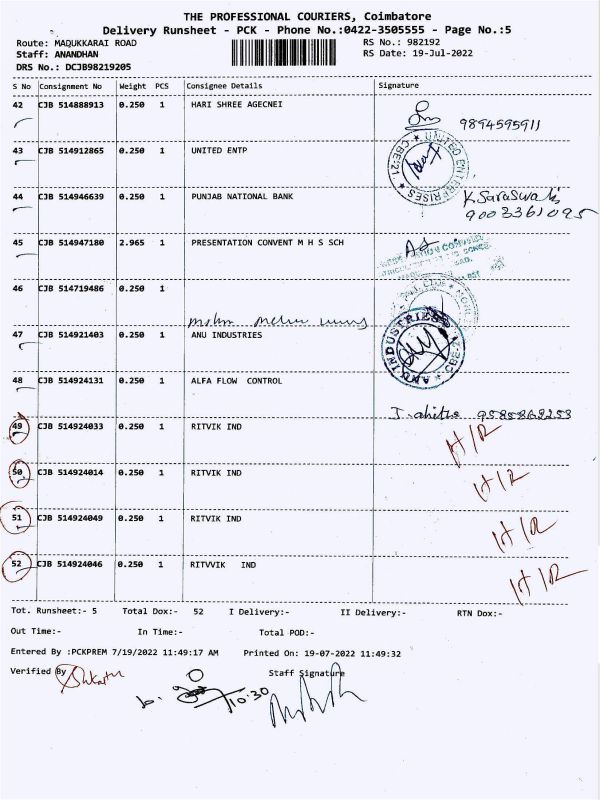 THE PROFESSIONAL COURIERS, Coimbatore
Delivery Runsheet - PCK - Phone No.:0422-3505555 - Page No.:5
Route: MADUKKARAI ROAD RS No.: 982192
Staff: ANANDHAN RS Date: 19-Jul-2022
DRS No.: DCJB98219205
S No Consignment No Weight PCS Consignee Details Signature
42 CJB 514888913 0.250 1 HARI SHREE AGECNEI
9894595911
43 CJB 514912865 0.250 1 UNITED ENTP
UNITED ENTERPRISES * CBE-21 *
44 CJB 514946639 0.250 1 PUNJAB NATIONAL BANK
K Saraswathi
9003361095
45 CJB 514947180 2.965 1 PRESENTATION CONVENT M H S SCH
46 CJB 514719486 0.250 1
47 CJB 514921403 0.250 1 ANU INDUSTRIES
ANU INDUSTRIES * CBE-21 *
48 CJB 514924131 0.250 1 ALFA FLOW CONTROL
9585869253
49 CJB 514924033 0.250 1 RITVIK IND H/R
50 CJB 514924014 0.250 1 RITVIK IND H/R
51 CJB 514924049 0.250 1 RITVIK IND H/R
52 CJB 514924046 0.250 1 RITVVIK IND H/R
Tot. Runsheet:- 5 Total Dox:- 52 I Delivery:- II Delivery:- RTN Dox:-
Out Time:- In Time:- Total POD:-
Entered By :PCKPREM 7/19/2022 11:49:17 AM Printed On: 19-07-2022 11:49:32
Verified By Staff Signature
10:30